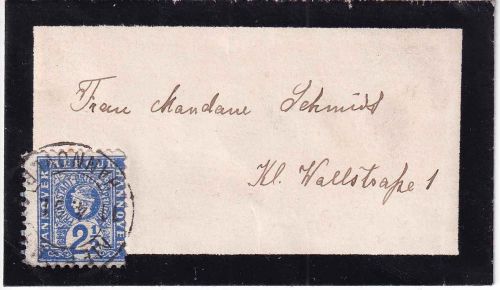 Frau Mandane Schmidt
Kl. Wallstraße 1
HANNOVER
2½